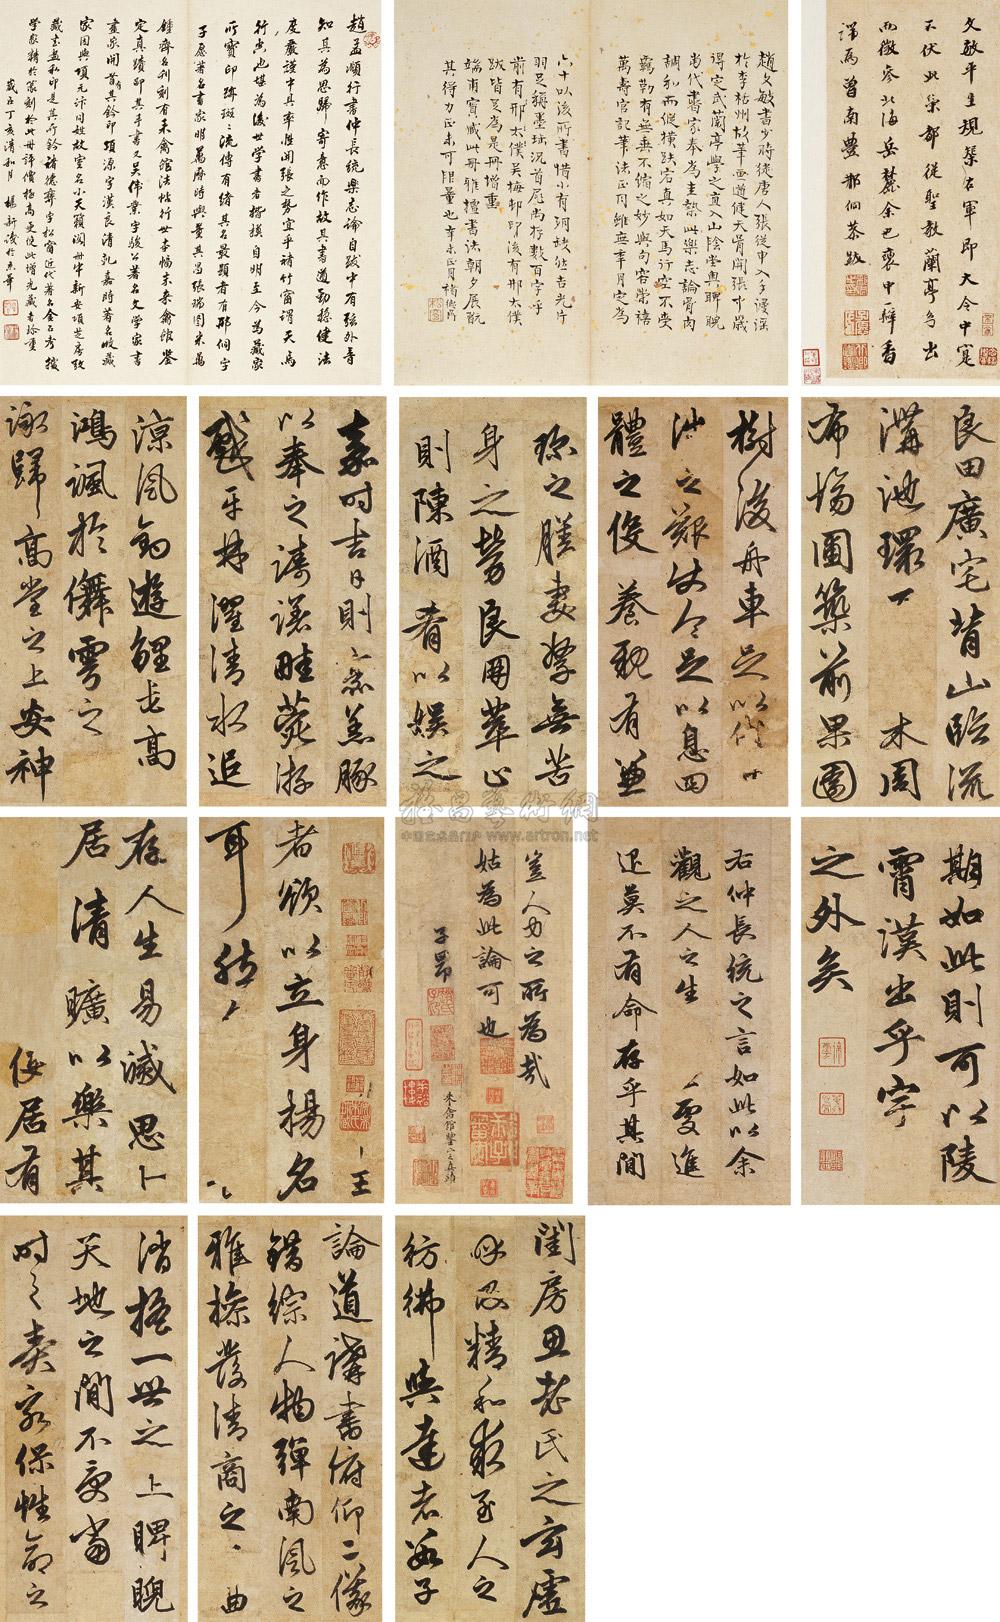 文敏平生規榘右軍即大令中寔
不伏此渠都從聖教蘭亭多出
而微參北海岳麓余已裹中瓣香
謹為曾南豐邢侗恭跋
趙文敏書少時從唐人張從申入手浸淫
於李枯州故筆畫遒健天骨開張中歲
得定武蘭亭學之直入山陰堂奧睥睨
當代書家奉為圭臬此樂志論骨肉
調和而縱橫跌宕真如天馬行空不受
羈勒有無垂不縮之妙與句容崇禧
萬壽宮記筆法正同雖無年月定為
六十以後所書惜小有殘缺然吉光片
羽足稱墨林況首尾尚存數百字乎
前有邢太僕吳梅邨印後有邢太僕
跋皆足為是冊增重
端甫寶臧此冊雅擅書法朝夕展翫
其得力正未可限量也辛未正月褚德彝
趙孟頫行書仲長統樂志論自跋中有弦外音
知其為思歸寄意而作故其書遒勁穩健法
度嚴謹中具率性開張之勢宜乎褚竹窗謂天馬
行空也堪為後世學書者楷模自明至今為藏家
所寶印跡斑斑流傳有緒其名最顯者有邢侗字
子愿著名書家明萬曆時與董其昌張瑞圖米萬
鍾齊名刊刻有來禽館法帖行世本幅來禽館鑒
定真蹟印其手書又吳偉業字駿公著名文學家書
畫家開首其鈐印項源字漢泉清乾嘉時著名收藏
家因與項元汴同姓故室名小天籟閣冊中新安項芝房攷
藏書畫私印是其所鈐褚德彝字松窗近代著名金石考據
學家精於篆刻於此冊評價極高更使此增光藏者珍重
歲在丁亥清和月 楊新後於京華
良田廣宅背山臨流
溝池環 木周
布場圃築前果園
樹後舟車足以代
涉之難使令足以息四
體之役養親有兼
珍之膳妻孥無苦
身之勞良朋萃止
則陳酒肴以娛之
嘉時吉日則烹羔豚
以奉之躊躇畦苑游
戲平林濯清水追
涼風釣遊鯉弋高
鴻諷於舞雩之
詠歸高堂之上安神
雅昌藝術網
www.artron.net
期如此則可以陵
霄漢出乎宇
之外矣
右仲長統之言如此以余
觀之人之生 處進
退莫不有命存乎其間
豈人力之所為哉
姑為此論可也
子昂
來禽館鑒定真蹟
王
者欲以立身揚名
耳然
存人生易滅思卜
居清曠以樂其
優居有
閨房思老氏之玄虛
呼吸精和求至人之
彷彿與達者數子
論道講書俯仰二儀
錯綜人物彈南風之
雅操發清商之 曲
消搖一世之上睥睨
天地之間不受當
時之責永保性命之